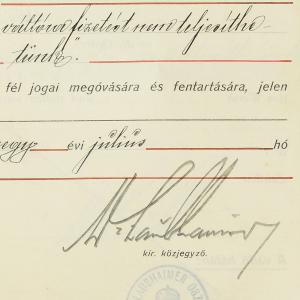 váltóra fizetést nem teljesíthe-
tünk".
fél jogai megóvására és fentartására, jelen
egy évi július hó
kir. közjegyző.